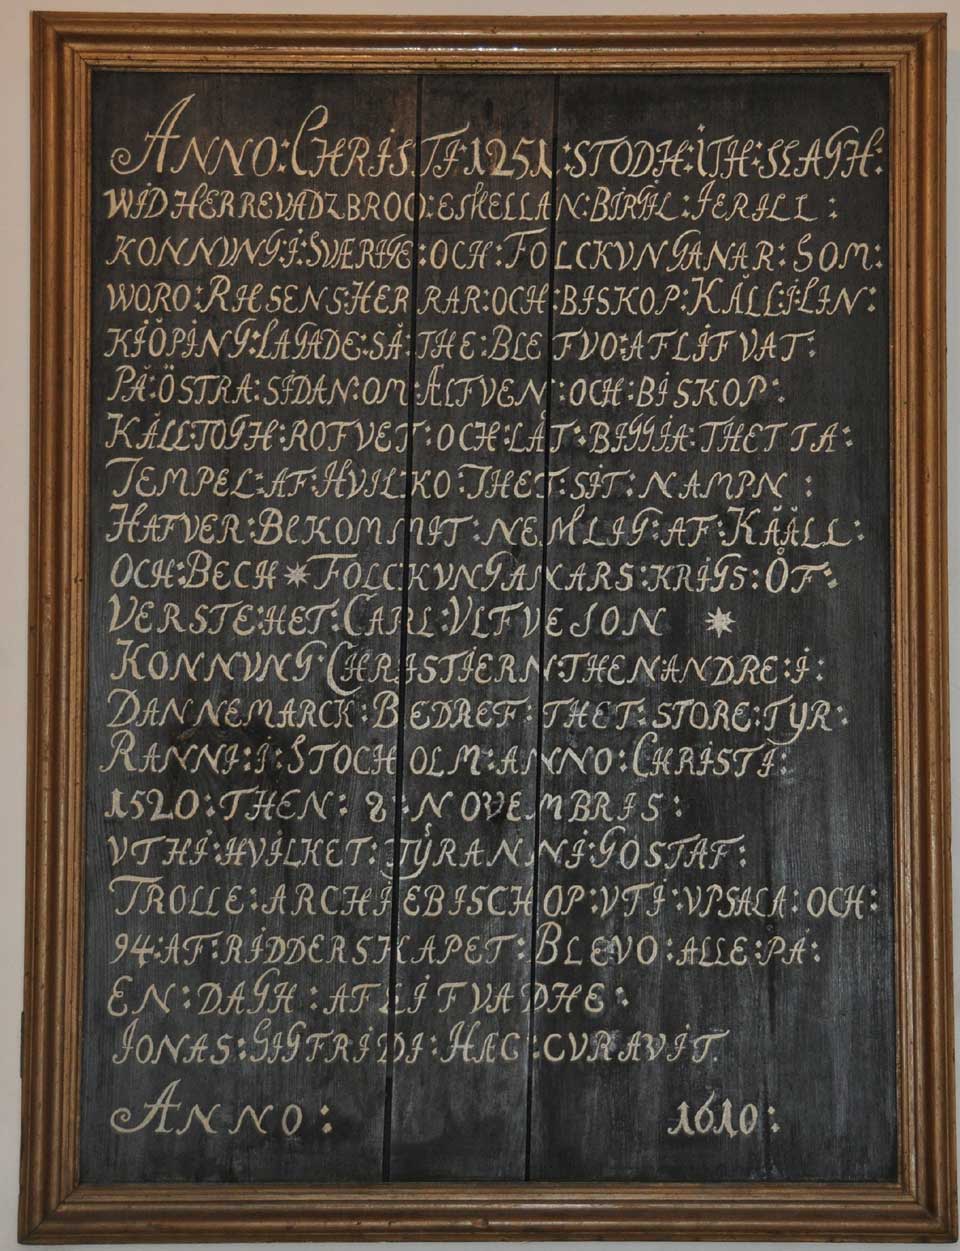 ANNO:CHRISTI:1251:STODH:ITH:SLAGH:
WID HERREVADZBROO:ESHELLAN:BIRGIL:IERILL:
KONNVNG:I:SVÆRIGE:OCH:FOLCKVNGANAR:SOM:
WORO:RIESENS:HERRAR:OCH:BISKOP:KÅLL:I:LIN:
KIÖPING:LAGADE:SÅ:THE:BLEFVO:AFLIFVAT:
PÅ:ÖSTRA:SIDAN:OM:ÄLFVEN:OCH:BISKOP:
KÅLL:TOGH:ROFVET:OCH:LÅT:BIGGIA:THETTA:
TEMPEL:AF:HVILKO:THET:SIT:NAMPN:
HAFVER:BEKOMMIT:NEMLIG:AF:KÅÅLL:
OCH:BECH * FOLCKVNGANARS:KRIGS:ÖF:
VERSTE:HET:CARL:VLFVESON *
KONNVNG:CHRISTIERN:THEN ANDRE:I:
DANNEMARCK:BEDREF:THET:STORE:TYR:
RANNI:I:STOCHOLM:ANNO:CHRISTI:
1520:THEN:8:NOVEMBRIS:
VTHI:HVILKET:TYRANNI:GOSTAF:
TROLLE:ARCHIEBISCHOP:VTI:VPSALA:OCH:
94:AF:RIDDERSKAPET:BLEVO:ALLE:PÅ:
EN:DAGH:AFLIFVADHE:
IONAS:SIGFRIDI:HAC:CVRAVIT.
ANNO: 1610: